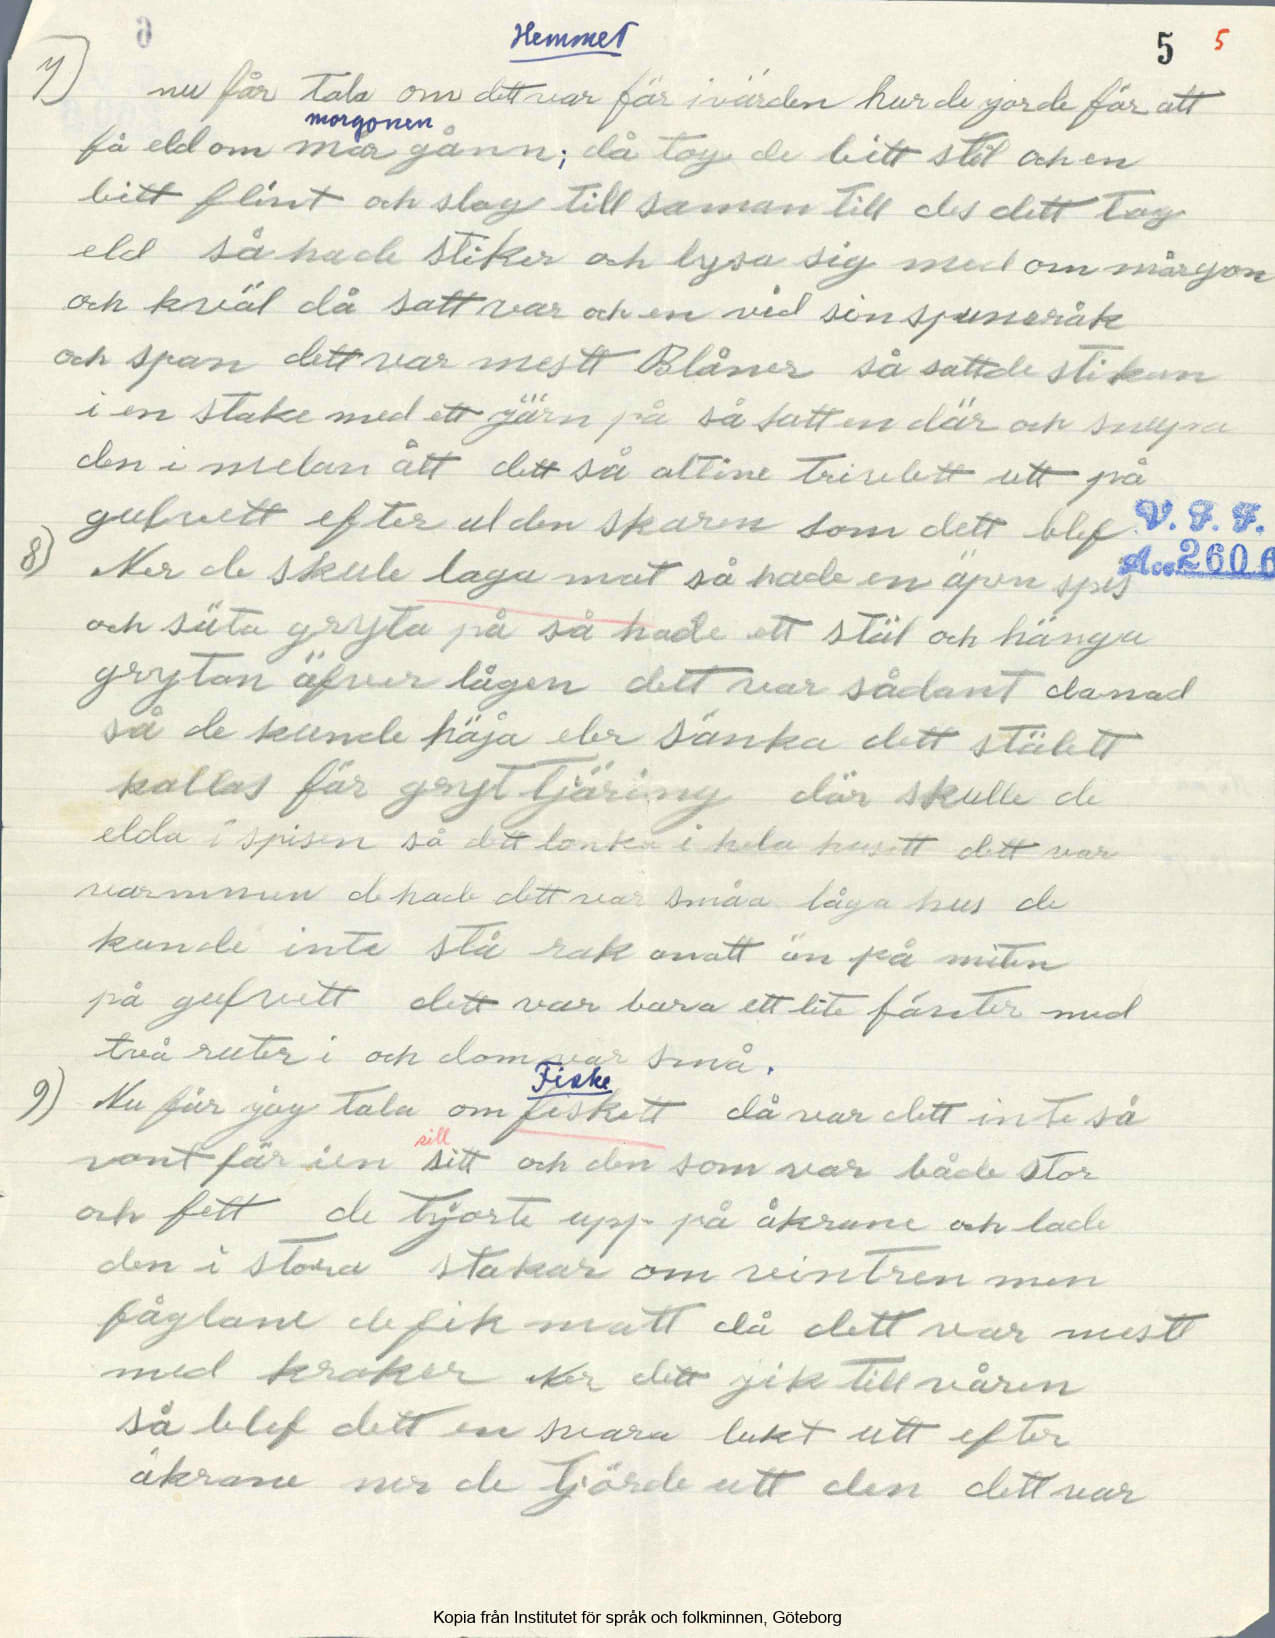 Hemmet
5 5
7) nu får tala om dett var fär i värden hur de jorde får att
morgonen
få eld om mår gånn; då tog de bitt stål och en
bitt flint och slog till saman till des dett tog
eld så hade stiker och lysa sig med om mårgon
och kväl då satt var och en vid sin spuneråk
och span dett var mestt Blåner så satt de stikan
i en stake med ett järn på så satt en där och snypa
den i melan ått dett så altine trivlett utt på
gulvett efter al den skaren som dett blef
V. F. F.
Acc. 2606
8) Ner de skule laga mat så hade en äpen spis
och säta gryta på så hade ett stäl och hänga
grytan äfver lågen dett var sådant danad
så de kunde häja eler sänka dett stälett
kallas fär gryt tjäring där skulle de
elda i spisen så dett lonka i hela husett dett var
varmmen de hade dett var småa låga hus de
kunde inte stå rak anatt än på miten
på gulvett dett var bara ett lite fänster med
två ruter i och dom var små.
Fiske
9) Nu får jag tala om fiskett då var dett inte så
sill
vont fär i en sitt och den som var både stor
och fett de tjorte upp på åkrane och lade
den i stora stakar om vintren men
fåglane de fik matt då dett var mestt
med kraker Ner dett jik till våren
så blef dett en svara lukt utt efter
åkrane ner de tjörde utt den dett var
Kopia från Institutet för språk och folkminnen, Göteborg